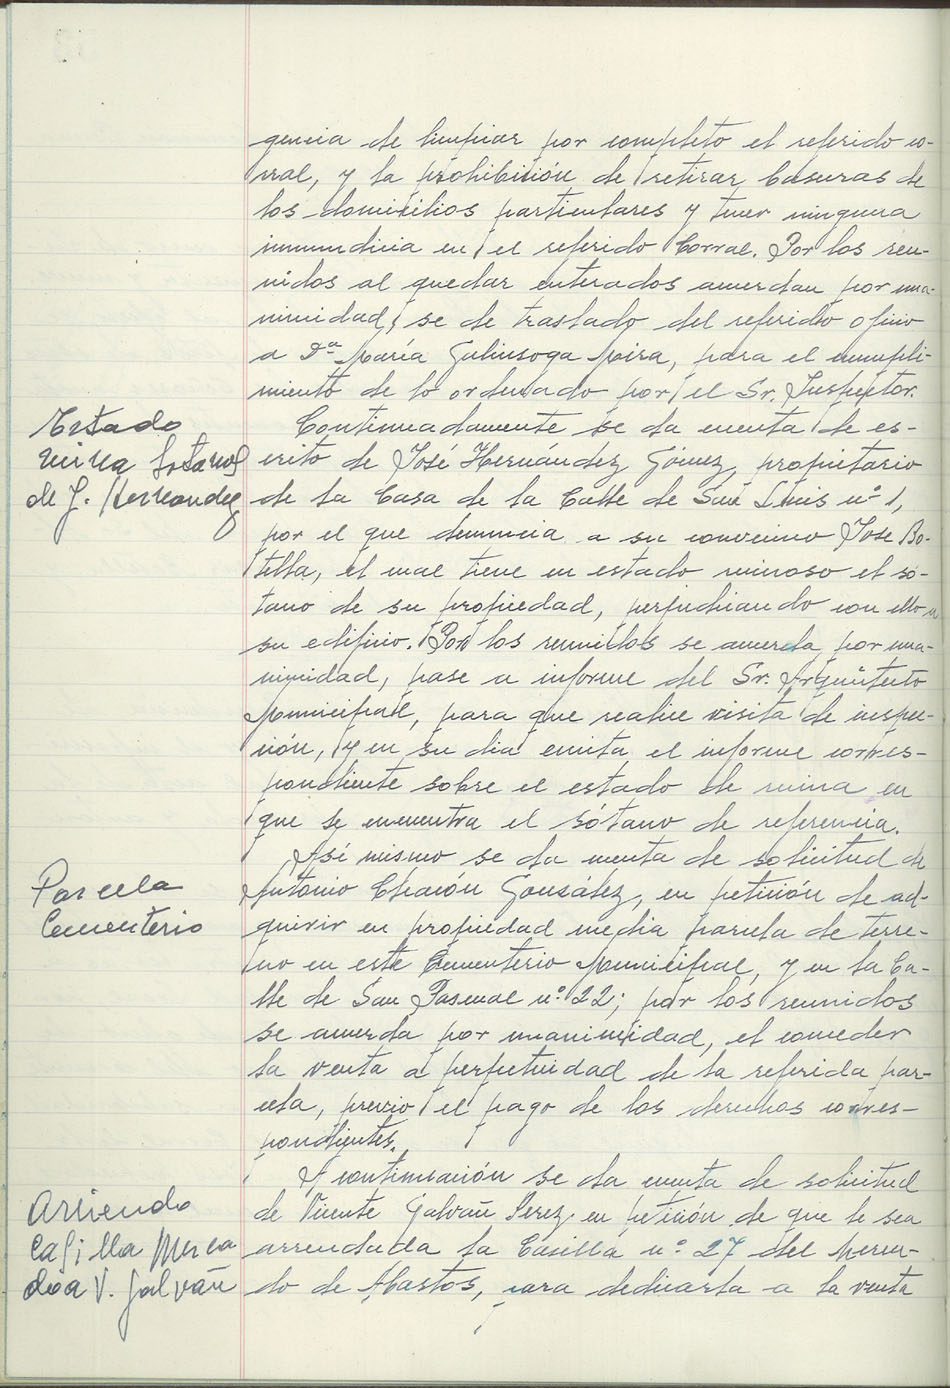 gencia de limpiar por completo el referido co-
rral, y la prohibición de retirar basuras de
los domicilios particulares y tener ninguna
inmundicia en el referido Corral. Por los reu-
nidos al quedar enterados acuerdan por una-
nimidad, se de traslado del referido oficio
a Dª María Galinsoga Mira, para el cumpli-
miento de lo ordenado por el Sr. Inspector.
Estado
ruina Sotano
de J. Hernandez
Continuadamente se da cuenta de es-
crito de José Hernández Gómez, propietario
de la Casa de la Calle de San Luis nº 1,
por el que denuncia a su convecino José Bo-
tella, el cual tiene en estado ruinoso el só-
tano de su propiedad, perjudicando con ello a
su edificio. Por los reunidos se acuerda por una-
nimidad, pase a informe del Sr. Arquitecto
Municipal, para que realice visita de inspec-
ción, y en su dia emita el informe corres-
pondiente sobre el estado de ruina en
que se encuentra el sótano de referencia.
Parcela
Cementerio
Así mismo se da cuenta de solicitud de
Antonio Chacón González, en petición de ad-
quirir en propiedad media parcela de terre-
no en este Cementerio Municipal, y en la Ca-
lle de San Pascual nº 22; por los reunidos
se acuerda por unanimidad, el conceder
la venta a perpetuidad de la referida par-
cela, previo el pago de los derechos corres-
pondientes.
Arriendo
Casilla Merca
do a V. Galvañ
A continuación se da cuenta de solicitud
de Vicente Galvañ Perez en petición de que le sea
arrendada la Casilla nº 27 del Merca-
do de Abastos, para dedicarla a la venta